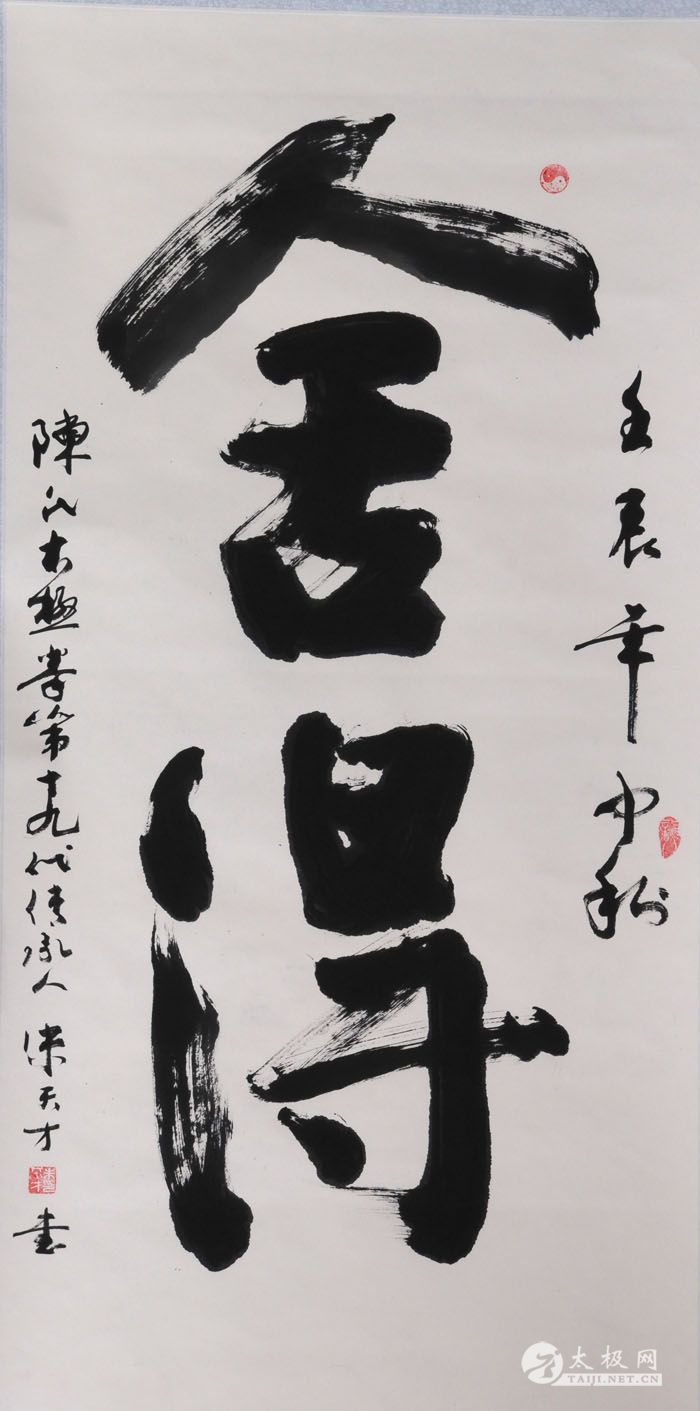 壬辰年中秋
舍得
陳氏太極拳第十九代传承人 朱天才 书
太极网
TAIJI.NET.CN